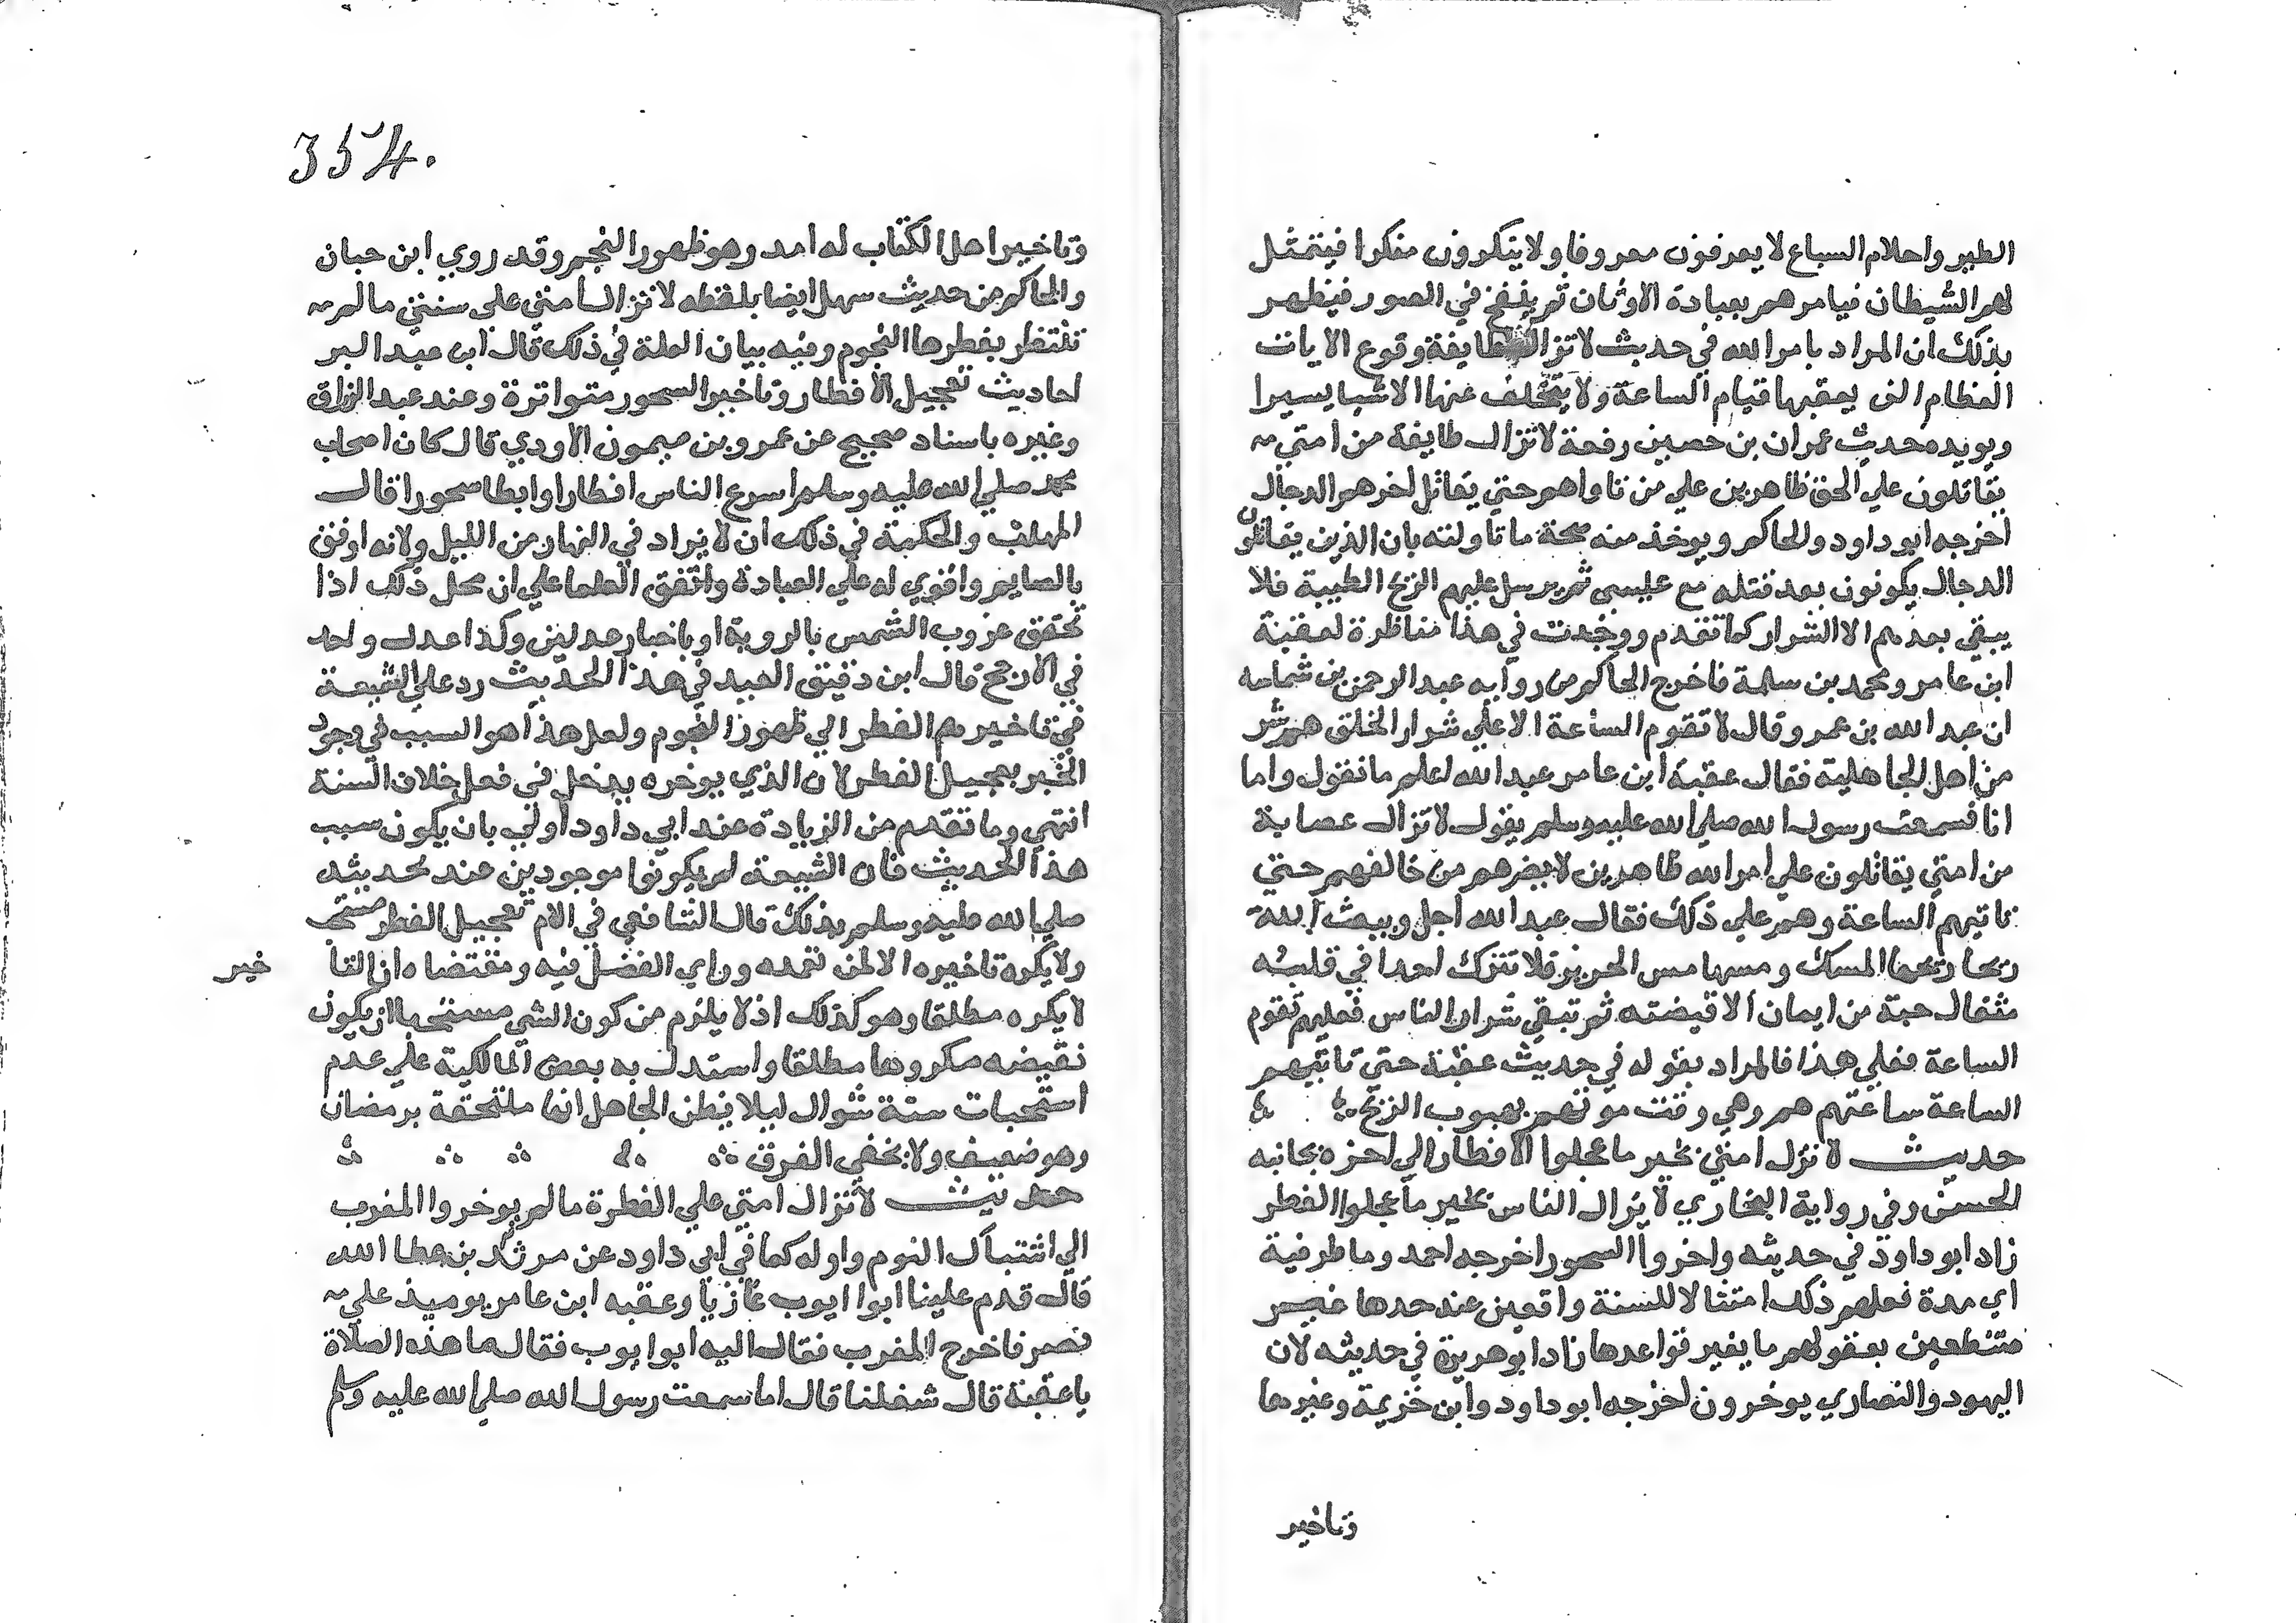 الطير واحلام السباع لا يعرفون معروفا ولا ينكرون منكرا فيتمثل
لهم الشيطان فيامرهم بعبادة الاوثان ثم ينفخ في الصور فيظهر
بذلك ان المراد بامر الله في حديث لا تزال طايفة وقوع الايات
العظام التي يعقبها قيام الساعة ولا يتخلف عنها الا شيا يسيرا
ويويده حديث عمران بن حصين رفعه لا تزال طايفة من امتي
يقاتلون علي الحق ظاهرين علي من ناواهم حتي يقاتل اخرهم الدجال
اخرجه ابو داود والحاكم ويوخذ منه صحة ما تاولته بان الذين يقاتلون
الدجال يكونون بعد قتله مع عيسي ثم يرسل عليهم الريح الطيبة فلا
يبقي بعدهم الا الشرار كما تقدم ووجدت في هذا مناظرة لعقبة
ابن عامر ومحمد بن سلمة فاخرج الحاكم من رواية عبد الرحمن بن شماسه
ان عبد الله بن عمرو قال لا تقوم الساعة الا علي شرار الخلق هم شر
من اهل الجاهلية فقال عقبة ابن عامر عبد الله اعلم ما تقول واما
انا فسمعت رسول الله صلي الله عليه وسلم يقول لا تزال عصابة
من امتي يقاتلون علي امر الله ظاهرين لا يضرهم من خالفهم حتي
تاتيهم الساعة وهم علي ذلك فقال عبد الله اجل ويبعث الله
ريحا ريحها المسك ومسها مس الحرير فلا تترك احدا في قلبه
مثقال حبة من ايمان الا قبضته ثم تبقي شرار الناس فعليهم تقوم
الساعة فعلي هذا فالمراد بقوله في حديث عقبة حتي تاتيهم
الساعة ساعتهم هم وهي وقت موتهم بهبوب الريح
حديث لا تزل امتي بخير ما عجلوا الافطار الي اخره بجانبه
الحسن وفي رواية البخاري لا يزال الناس بخير ما عجلوا الفطر
زاد ابو داود في حديثه واخروا السحور اخرجه احمد وما ظرفية
اي مدة فعلهم ذلك امتثالا للسنة واقعين عند حدها غير
متنطعين بعقولهم ما يغير قواعدها زاد ابو هريرة في حديثه لان
اليهود والنصاري يوخرون اخرجه ابو داود وابن خزيمة وغيرها
وتاخير
354.
وتاخير اهل الكتاب له امد وهو ظهور النجم وقد روي ابن حبان
والحاكم من حديث سهل ايضا بلفظه لا تزال امتي علي سنتي ما لم
تنتظر بفطرها النجوم وفيه بيان العلة في ذلك قال ابن عبد البر
احاديث تعجيل الافطار وتاخير السحور متواترة وعند عبد الرزاق
وغيره باسناد صحيح عن عمرو بن ميمون الاودي قال كان اصحاب
محمد صلي الله عليه وسلم اسرع الناس افطارا وابطا سحورا قال
المهلب والحكمة في ذلك ان لا يزاد في النهار من الليل ولانه اوفق
بالصايم واقوي له علي العبادة واتفق العلما علي ان محل ذلك اذا
تحقق غروب الشمس بالروية او باخبار عدلين وكذا عدل واحد
في الارجح قال ابن دقيق العيد في هذا الحديث رد علي الشيعة
في تاخيرهم الفطر الي ظهور النجوم ولعل هذا هو السبب في وجود
الخير بتعجيل الفطر لان الذي يوخره يدخل في فعل خلاف السنة
انتهي وما تقدم من الزيادة عند ابي داود اولي بان يكون سبب
هذا الحديث فان الشيعة لم يكونوا موجودين عند تحديثه
صلي الله عليه وسلم بذلك قال الشافعي في الام تعجيل الفطر مستحب
ولا يكره تاخيره الا لمن تعمده وراي الفضل فيه ومقتضاه ان التا
خير
لا يكره مطلقا وهو كذلك اذ لا يلزم من كون الشي مستحبا ان يكون
نقيضه مكروها مطلقا واستدل به بعض المالكية علي عدم
استحباب ستة شوال ليلا يظن الجاهل انها ملتحقة برمضان
وهو ضعيف ولا يخفي الفرق
حديث لا تزال امتي علي الفطرة ما لم يوخروا المغرب
الي اشتباك النجوم واوله كما في ابي داود عن مرثد بن عطا الله
قال قدم علينا ابوا ايوب غازيا وعقبه ابن عامر يوميذ علي
مصر فاخرج المغرب فقال اليه ابوا يوب فقال ما هذه الصلاة
يا عقبة قال شغلنا قال اما سمعت رسول الله صلي الله عليه وسلم